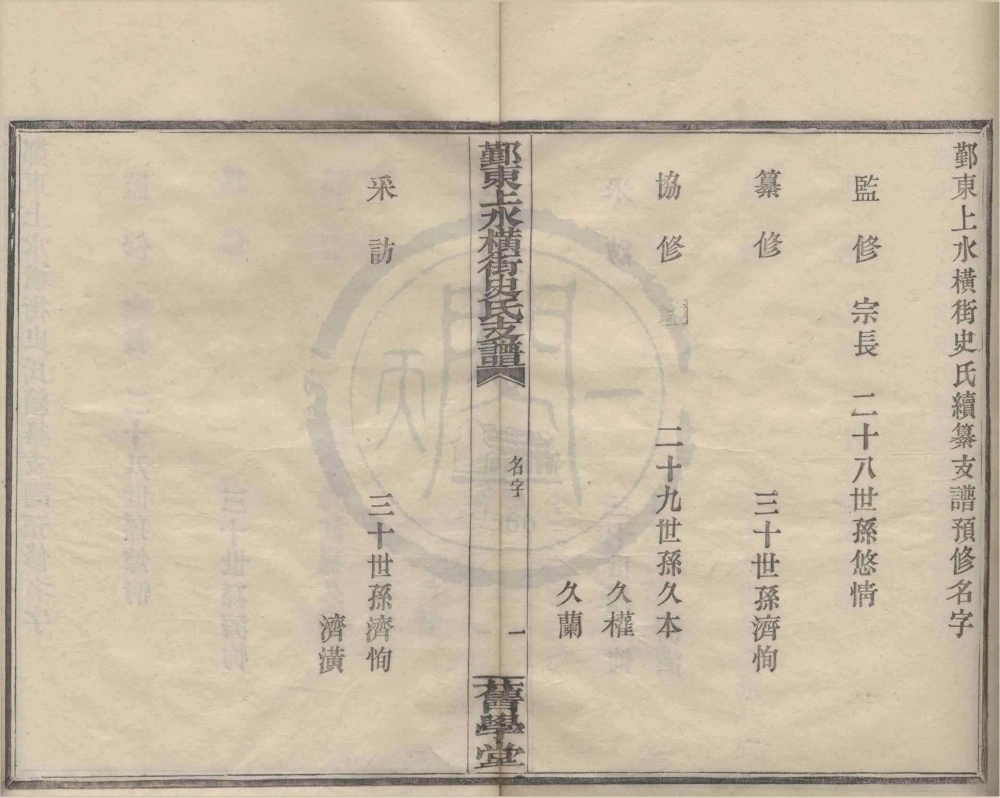 鄞東上水橫街史氏續纂支譜預修名字
監修 宗長 二十八世孫悠情
纂修 三十世孫濟恂
協修 二十九世孫久本
久權
久蘭
鄞東上水橫街史氏支譜
名字
一
舊學堂
采訪 三十世孫濟恂
濟潢